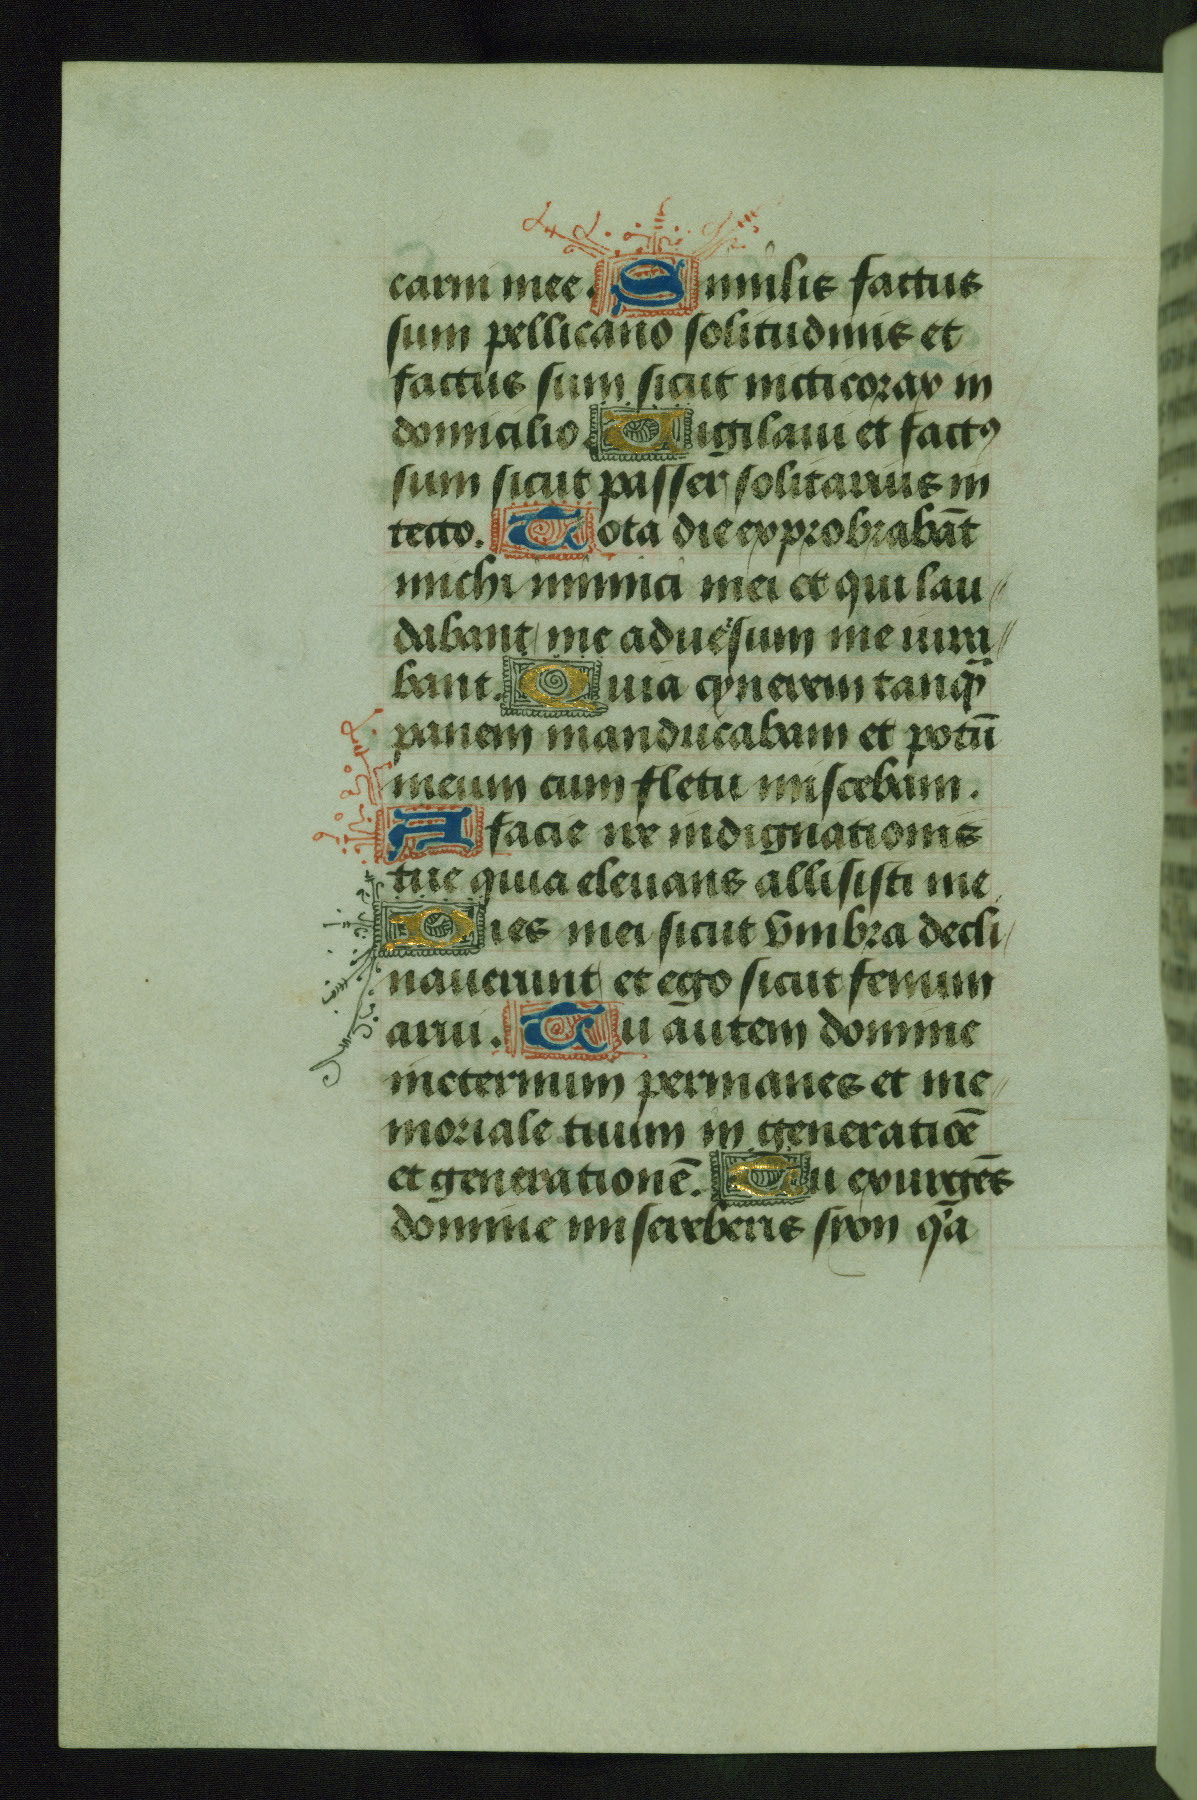 carni mee. Similis factus
sum pellicano solitudinis et
factus sum sicut nicticorax in
domicilio. Vigilaui et fact⁹
sum sicut passer solitarius in
tecto. Tota die exprobrabāt
michi inimici mei et qui lau
dabant me aduersum me iura
bant. Quia cynerem tanqͣ
panem manducabam et potū
meum cum fletu miscebam.
A facie ire indignationis
tue quia eleuans allisisti me
Dies mei sicut vmbra decli
nauerunt et ego sicut fenum
arui. Tu autem domine
ineternum permanes et me
moriale tuum in generatiōē
et generationē. Tu exurgēs
domine misereberis syon qͥa